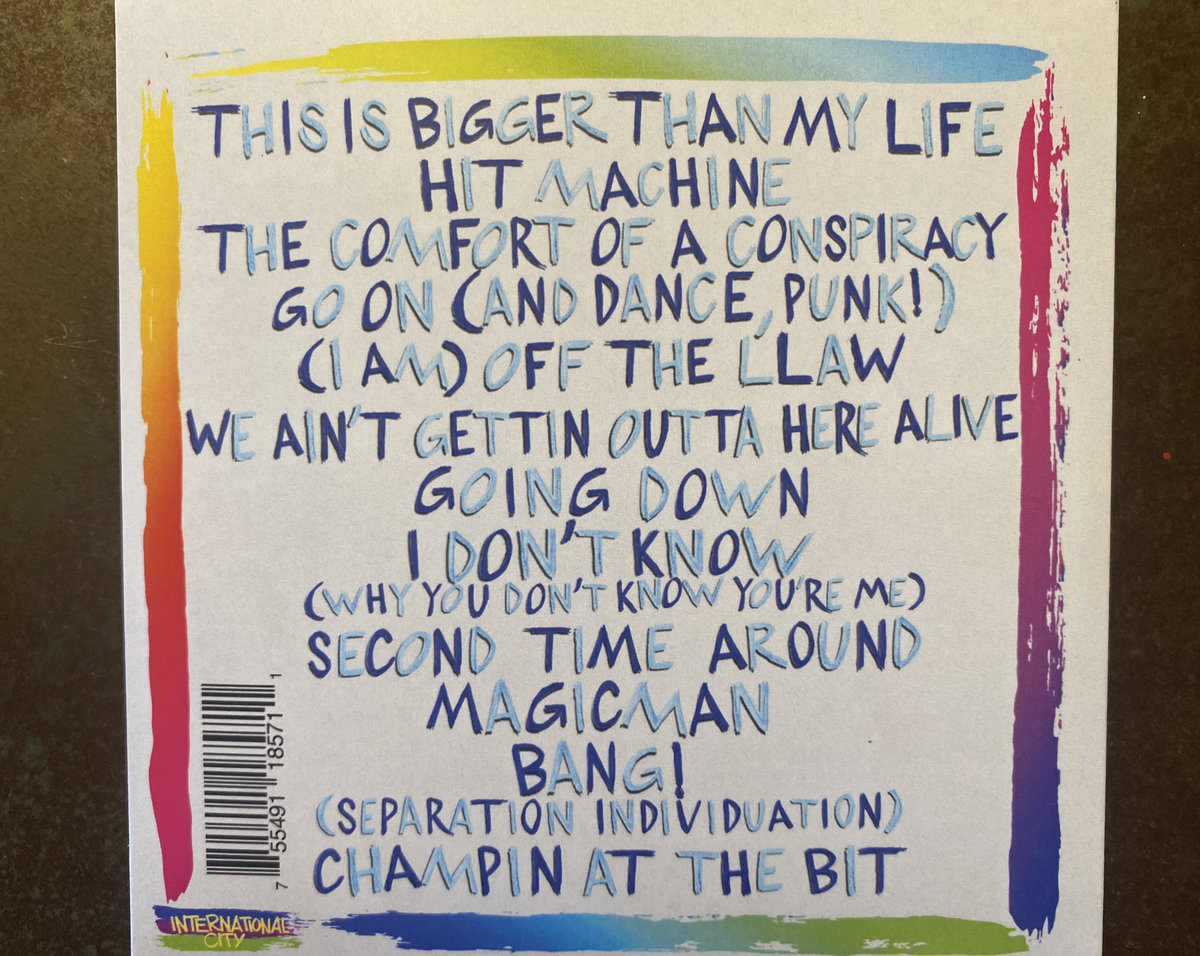 THIS IS BIGGER THAN MY LIFE
HIT MACHINE
THE COMFORT OF A CONSPIRACY
GO ON (AND DANCE, PUNK!)
(I AM) OFF THE L'LAW
WE AIN'T GETTIN OUTTA HERE ALIVE
GOING DOWN
I DON'T KNOW
(WHY YOU DON'T KNOW YOU'RE ME)
SECOND TIME AROUND
MAGICMAN
BANG!
(SEPARATION INDIVIDUATION)
CHAMPIN AT THE BIT
7 55491 18571 1
INTERNATIONAL
CITY